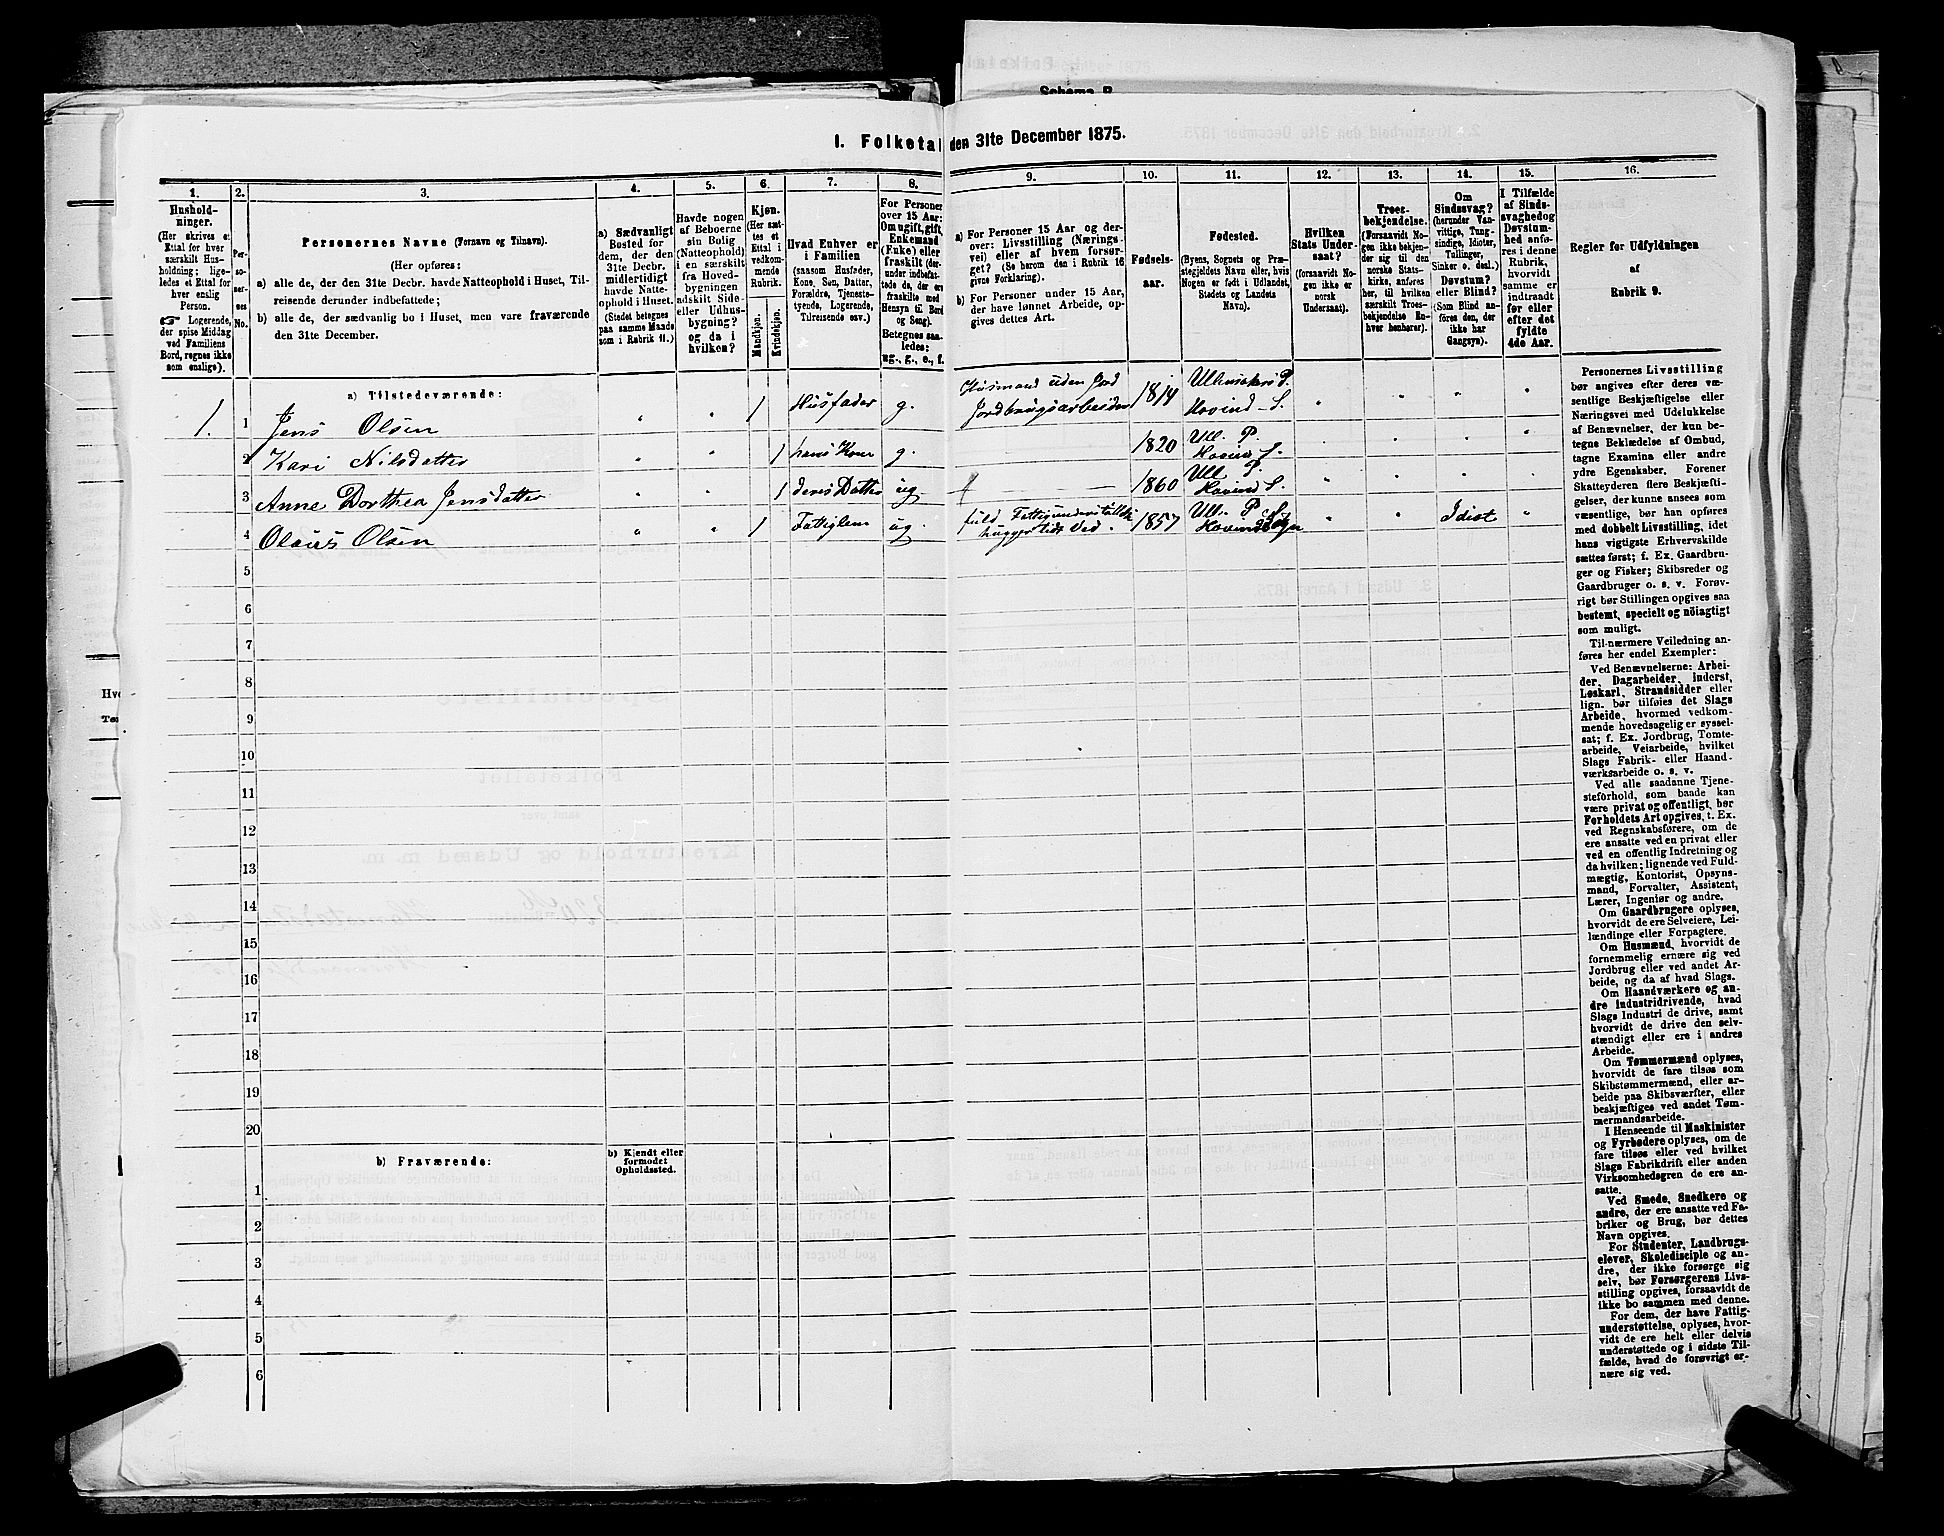 Schema B.
1. Folketal den 31te December 1875.
1.
2.
3.
4.
5.
6.
7.
8.
9.
10.
11.
12.
13.
14.
15.
16.
Hushold-
ninger.
(Her skrives et
Ettal for hver
særskilt Hus-
holdning; lige-
ledes et Ettal for
hver enslig
Person.
☞ Logerende,
der spise Middag
ved Familiens
Bord, regnes ikke
som enslige).
Per-
so-
ner-
nes
No.
Personernes Navne (Fornavn og Tilnavn).
(Her opføres:
a) alle de, der den 31te Decbr. havde Natteophold i Huset, Til-
reisende derunder indbefattede;
b) alle de, der sædvanlig bo i Huset, men vare fraværende
den 31te December.
a) Sædvanligt
Bosted for
dem, der den
31te Decbr.
midlertidigt
havde Natte-
ophold i Huset.
(Stedet betegnes
paa samme Maade
som i Rubrik 11.)
Havde nogen
af Beboerne
sin Bolig
(Natteophold)
i en særskilt
fra Hoved-
bygningen
adskilt Side-
eller Udhus-
bygning?
og da i
hvilken?
Kjøn.
(Her sæt-
tes et
Ettal i
vedkom-
mende
Rubrik.
Mandkjøn.
Kvindekjøn.
Hvad Enhver er
i Familien
(saasom Husfader,
Kone, Søn, Datter,
Forældre, Tjeneste-
tyende, Logerende,
Tilreisende osv.)
For Personer
over 15 Aar:
Om ugift, gift,
Enkemand
(Enke) eller
fraskilt (der-
under indbefat-
tede de, der ere
fraskilte med
Hensyn til Bord
og Seng).
Betegnes saa-
ledes:
ug., g., e., f.
a) For Personer 15 Aar og der-
over: Livsstilling (Nærings-
vei) eller af hvem forsør-
get? (Se herom den i Rubrik 16
givne Forklaring).
b) For Personer under 15 Aar,
der have lønnet Arbeide, op-
gives dettes Art.
Fødsels-
aar.
Fødested.
(Byens, Sognets og Præ-
stegjeldets Navn eller, hvis
Nogen er født i Udlandet,
Stedets og Landets
Navn).
Hvilken
Stats Under-
saat?
(forsaavidt No-
gen ikke er
norsk
Undersaat).
Troes-
bekjendelse.
(Forsaavidt No-
gen ikke bekjen-
der sig til den
norske Stats-
kirke, anføres
her, til hvilken
særskilt Troes-
bekjendelse En-
hver henhører).
Om
Sindssvag?
(herunder Van-
vittige, Tung-
sindige, Idioter,
Tullinger,
Sinker o. desl.)
Døvstum?
eller Blind?
(Som Blind an-
føres den, der
ikke har
Gangsyn).
I Tilfælde
af Sinds-
svaghed og
Døvstum-
hed anfø-
res i denne
Rubrik,
hvorvidt
samme er
indtraadt
før eller
efter det
fyldte
4de Aar.
Regler for Udfyldningen
af
Rubrik 9.
a) Tilstedeværende:
1. 1 Jens Olsen " " 1 Husfader g. Husmand uden Jord Jordbrugsarbeider 1814 Ullensakers P. Hovind S. " " " "
2 Kari Nilsdatter " " 1 hans Kone g. 1820 Ull. P. Hovind S. " " " "
3 Anne Dorthea Jensdatter " " 1 deres Datter ug. 1860 Ull. P. Hovind S. " " " "
4 Olaus Olsen " " 1 Fattiglem ug. fuld Fattigunderstøttelse hugger tids Ved. 1857 Ull. P. Hovind Sogn " " Idiot "
5
6
7
8
9
10
11
12
13
14
15
16
17
18
19
20
b) Fraværende:
b) Kjendt eller
formodet
Opholdssted.
1
2
3
4
5
6
Personernes Livsstilling
bør angives efter deres væ-
sentlige Beskjæftigelse eller
Næringsvei med Udelukkelse
af Benævnelser, der kun be-
tegne Beklædelse af Ombud,
tagne Examina eller andre
ydre Egenskaber. Forener
Skatteyderen flere Beskjæfti-
gelser, der kunne ansees som
væsentlige, bør han opføres
med dobbelt Livsstilling, idet
hans vigtigste Erhvervskilde
sættes først; f. Ex. Gaardbru-
ger og Fisker; Skibsreder og
Gaardbruger o. s. v. Forøv-
rigt bør Stillingen opgives saa
bestemt, specielt og nöiagtigt
som muligt.
Til nærmere Veiledning an-
føres her endel Exempler:
Ved Benævnelserne: Arbei-
der, Dagarbeider, Inderst,
Løskarl, Strandsidder eller
lign. bør tilføies det Slags
Arbeide, hvormed vedkom-
mende hovedsagelig er syssel-
sat; f. Ex. Jordbrug, Tomte-
arbeide, Veiarbeide, hvilket
Slags Fabrik- eller Haand-
værksarbeide o. s. v.
Ved alle saadanne Tjene-
steforhold, som baade kan
være privat og offentligt, bør
Forholdets Art opgives, t. Ex.
ved Regnskabsførere, om de
ere ansatte ved en privat eller
ved en offentlig Indretning og
da hvilken; lignende ved Fuld-
mægtig, Kontorist, Opsyns-
mand, Forvalter, Assistent,
Lærer, Ingeniør og andre.
Om Gaardbrugere oplyses,
hvorvidt de ere Selveiere, Lei-
lændinge eller Forpagtere.
Om Husmænd, hvorvidt de
fornemmelig ernære sig ved
Jordbrug eller ved andet Ar-
beide, og da af hvad Slags.
Om Haandværkere og an-
dre Industridrivende, hvad
Slags Industri de drive, samt
hvorvidt de drive den selv-
stændigt eller ere i andres
Arbeide.
Om Tømmermænd oplyses,
hvorvidt de fare tilsøs som
Skibstømmermænd, eller ar-
beide paa Skibsværfter, eller
beskjæftiges ved andet Tøm-
mermandsarbeide.
I Henseende til Maskinister
og Fyrbødere oplyses, om de
fare tilsøs eller ved hvilket
Slags Fabrikdrift eller anden
Virksomhedsgren de ere an-
satte.
Ved Smede, Snedkere og
andre, der ere ansatte ved Fa-
briker og Brug, bør dettes
Navn opgives.
For Studenter, Landbrugs-
elever, Skoledisciple og an-
dre, der ikke forsørge sig
selv, bør Forsørgerens Livs-
stilling opgives, forsaavidt de
ikke bo sammen med denne.
For dem, der have Fattig-
understøttelse, oplyses, hvor-
vidt de ere helt eller delvis
understøttede og i sidste Til-
fælde, hvad de forøvrigt er-
nære sig ved.